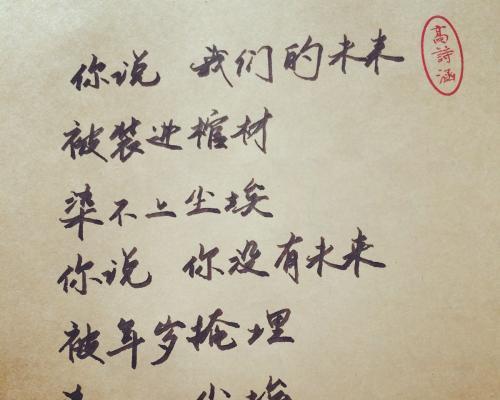 你说 我们的未来
被装进棺材
染不上尘埃
你说 你没有未来
被年岁掩埋
尘埃
高詩涵